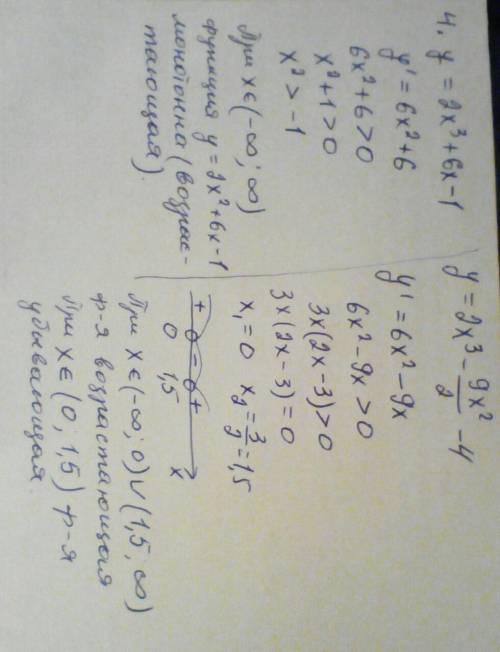 4. y = 2x³+6x-1
y' = 6x²+6
6x²+6>0
x²+1>0
x²>-1
При x∈(-∞; ∞)
функция y = 2x²+6x-1
монотонна (возрас-
тающая).
y = 2x³ - 9x²/2 - 4
y' = 6x² - 9x
6x² - 9x > 0
3x(2x-3)>0
3x(2x-3)=0
x₁ = 0 x₂ = 3/2 = 1,5
+ - +
0 1,5 x
При x∈(-∞; 0)∪(1,5; ∞)
ф-я возрастающая
При x∈(0; 1,5) ф-я
убывающая.